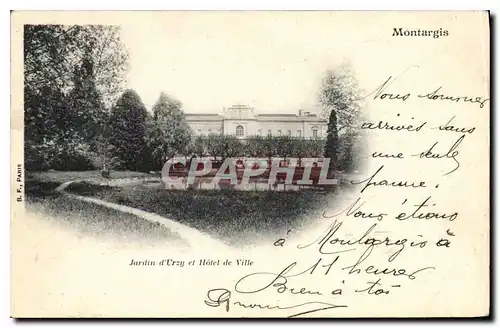 Montargis
Nous sommes
arrivés sans
une seule
panne.
Nous étions
à Montargis à
11 heures
Bien à toi
Jardin d'Urzy et Hôtel de Ville
B. F., PARIS
CARPI